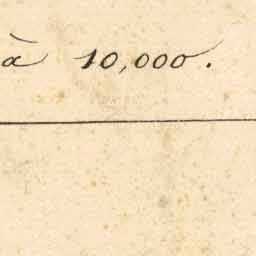 à 10,000.